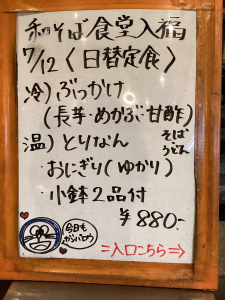 和そば食堂入福
7/12〈日替定食〉
冷)ぶっかけ
(長芋・めかぶ・甘酢)
温)とりなん
そば
うどん
・おにぎり(ゆかり)
・小鉢2品付
¥880-
今日も
ガンバロウ
⇒入口こちら⇒